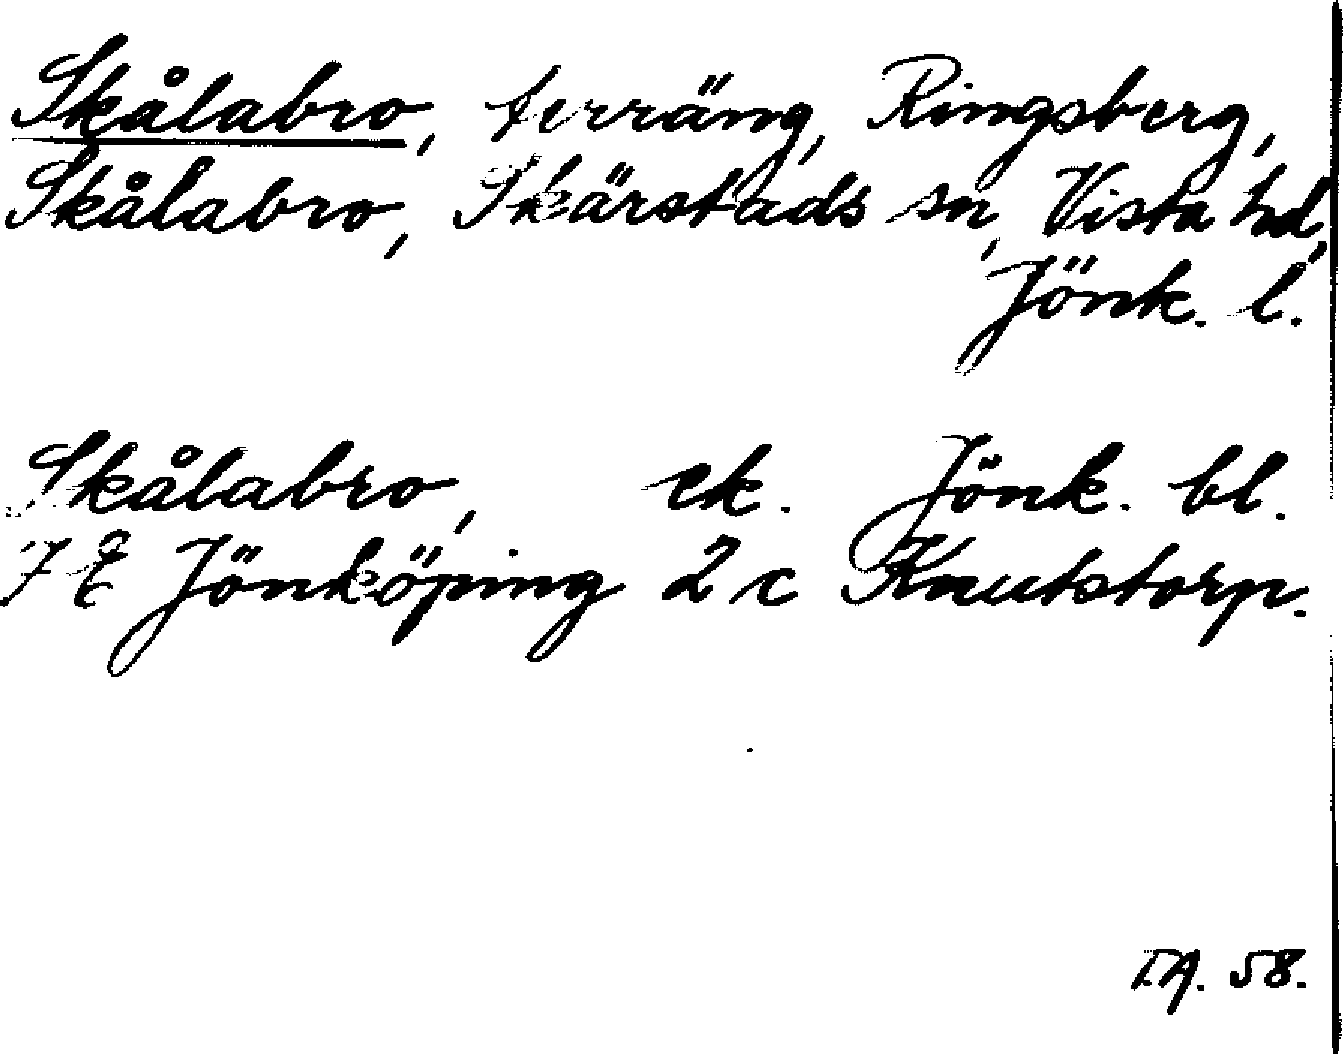 Skålabro, terräng, Ringsberg,
Skålabro, Skärstads sn, Vista hd,
Jönk. l.
Skålabro, ek. Jönk. bl.
7 E Jönköping 2 c Knutstorp.
I.A. 58.